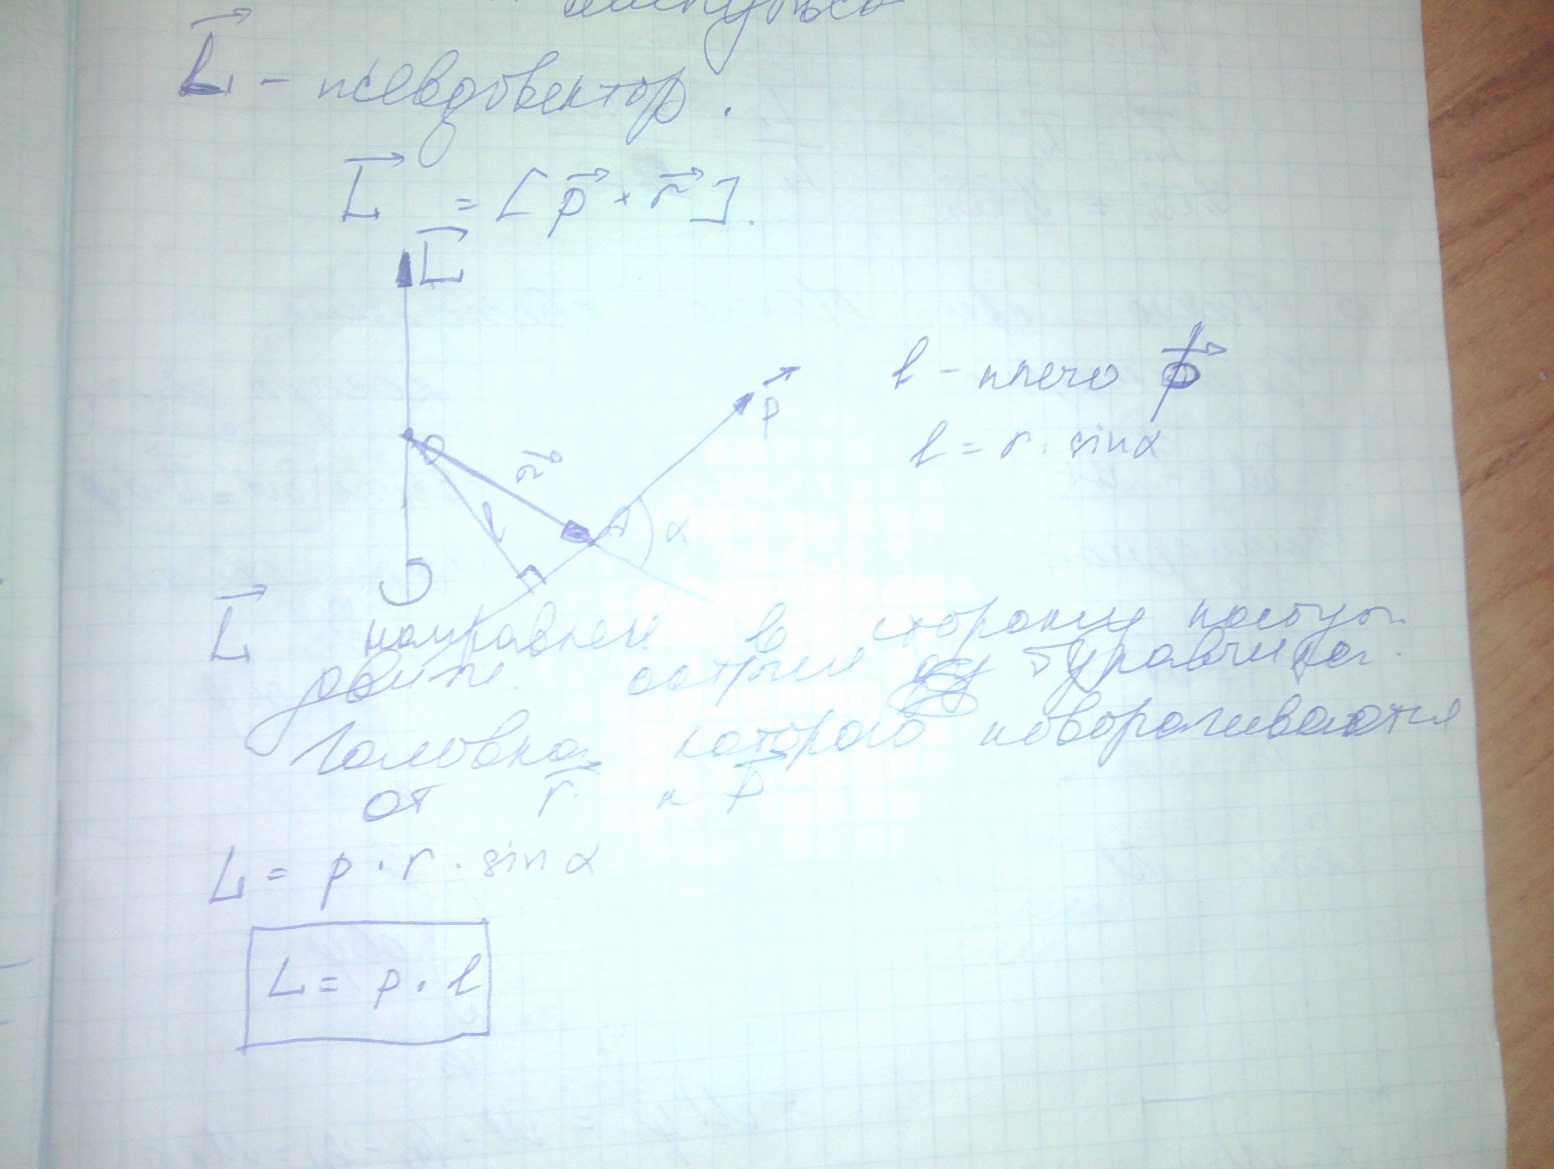 импульса
L⃗ - псевдовектор.
L⃗ = [p⃗ × r⃗].
L⃗
p⃗
O
r⃗
l
A
α
l - плечо p⃗
l = r · sin α
L⃗ направлен в сторону поступ.
движ. острия буравчика.
Головка которого поворачивается
от r⃗ к p⃗
L = p · r · sin α
L = p · l